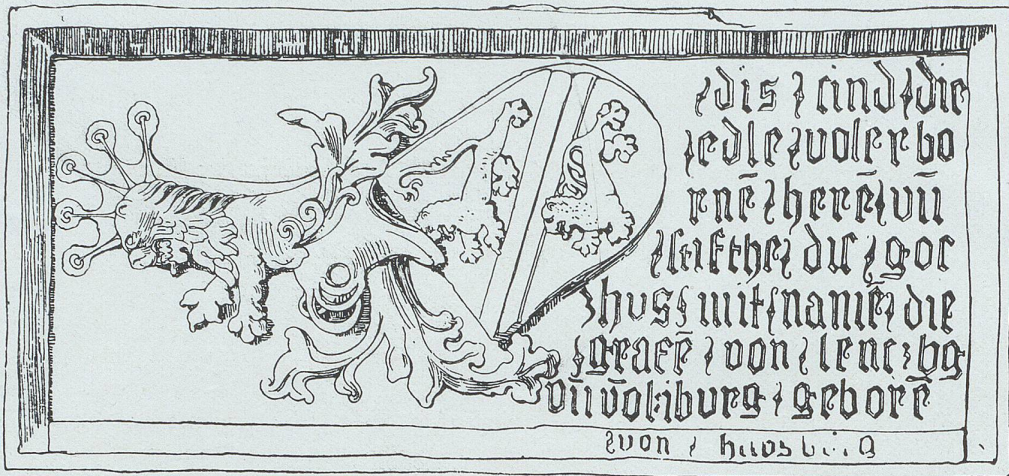 dis sind die
edle wolerbo
rnē herē vn̄
stifther dis goc
zhus mit namē die
grafē von lenczbg
vn̄ vō kiburg geborē
von habsburg